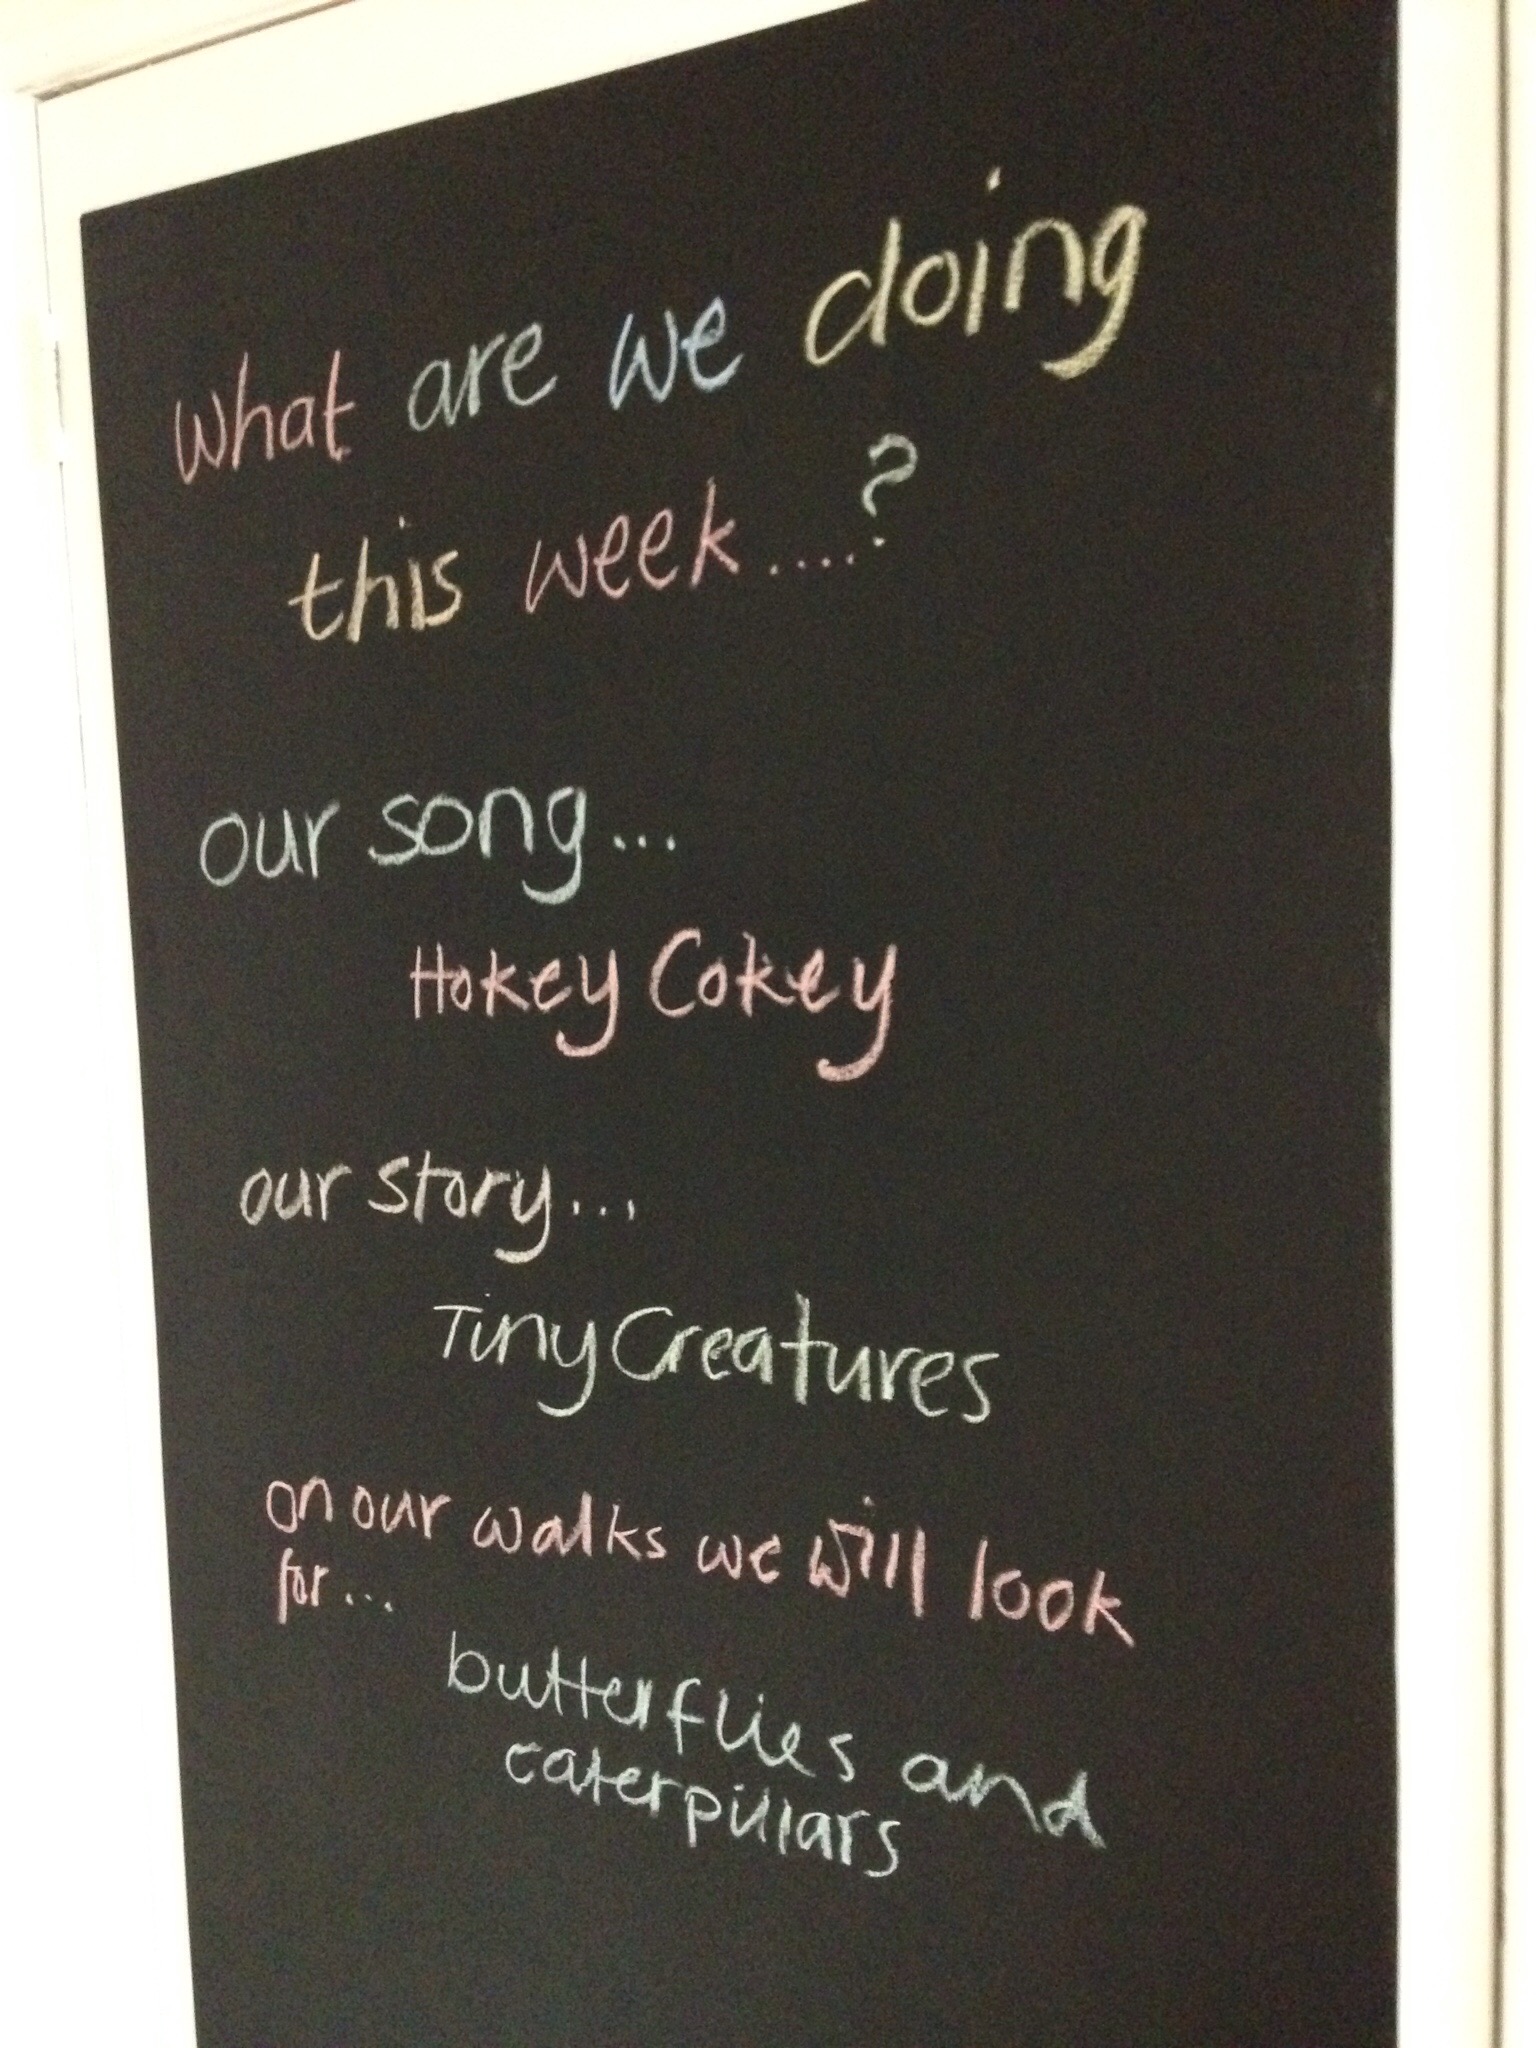 what are we doing
this week....?
our song...
Hokey Cokey
our story...
Tiny Creatures
on our walks we will look
for...
butterflies and
caterpillars